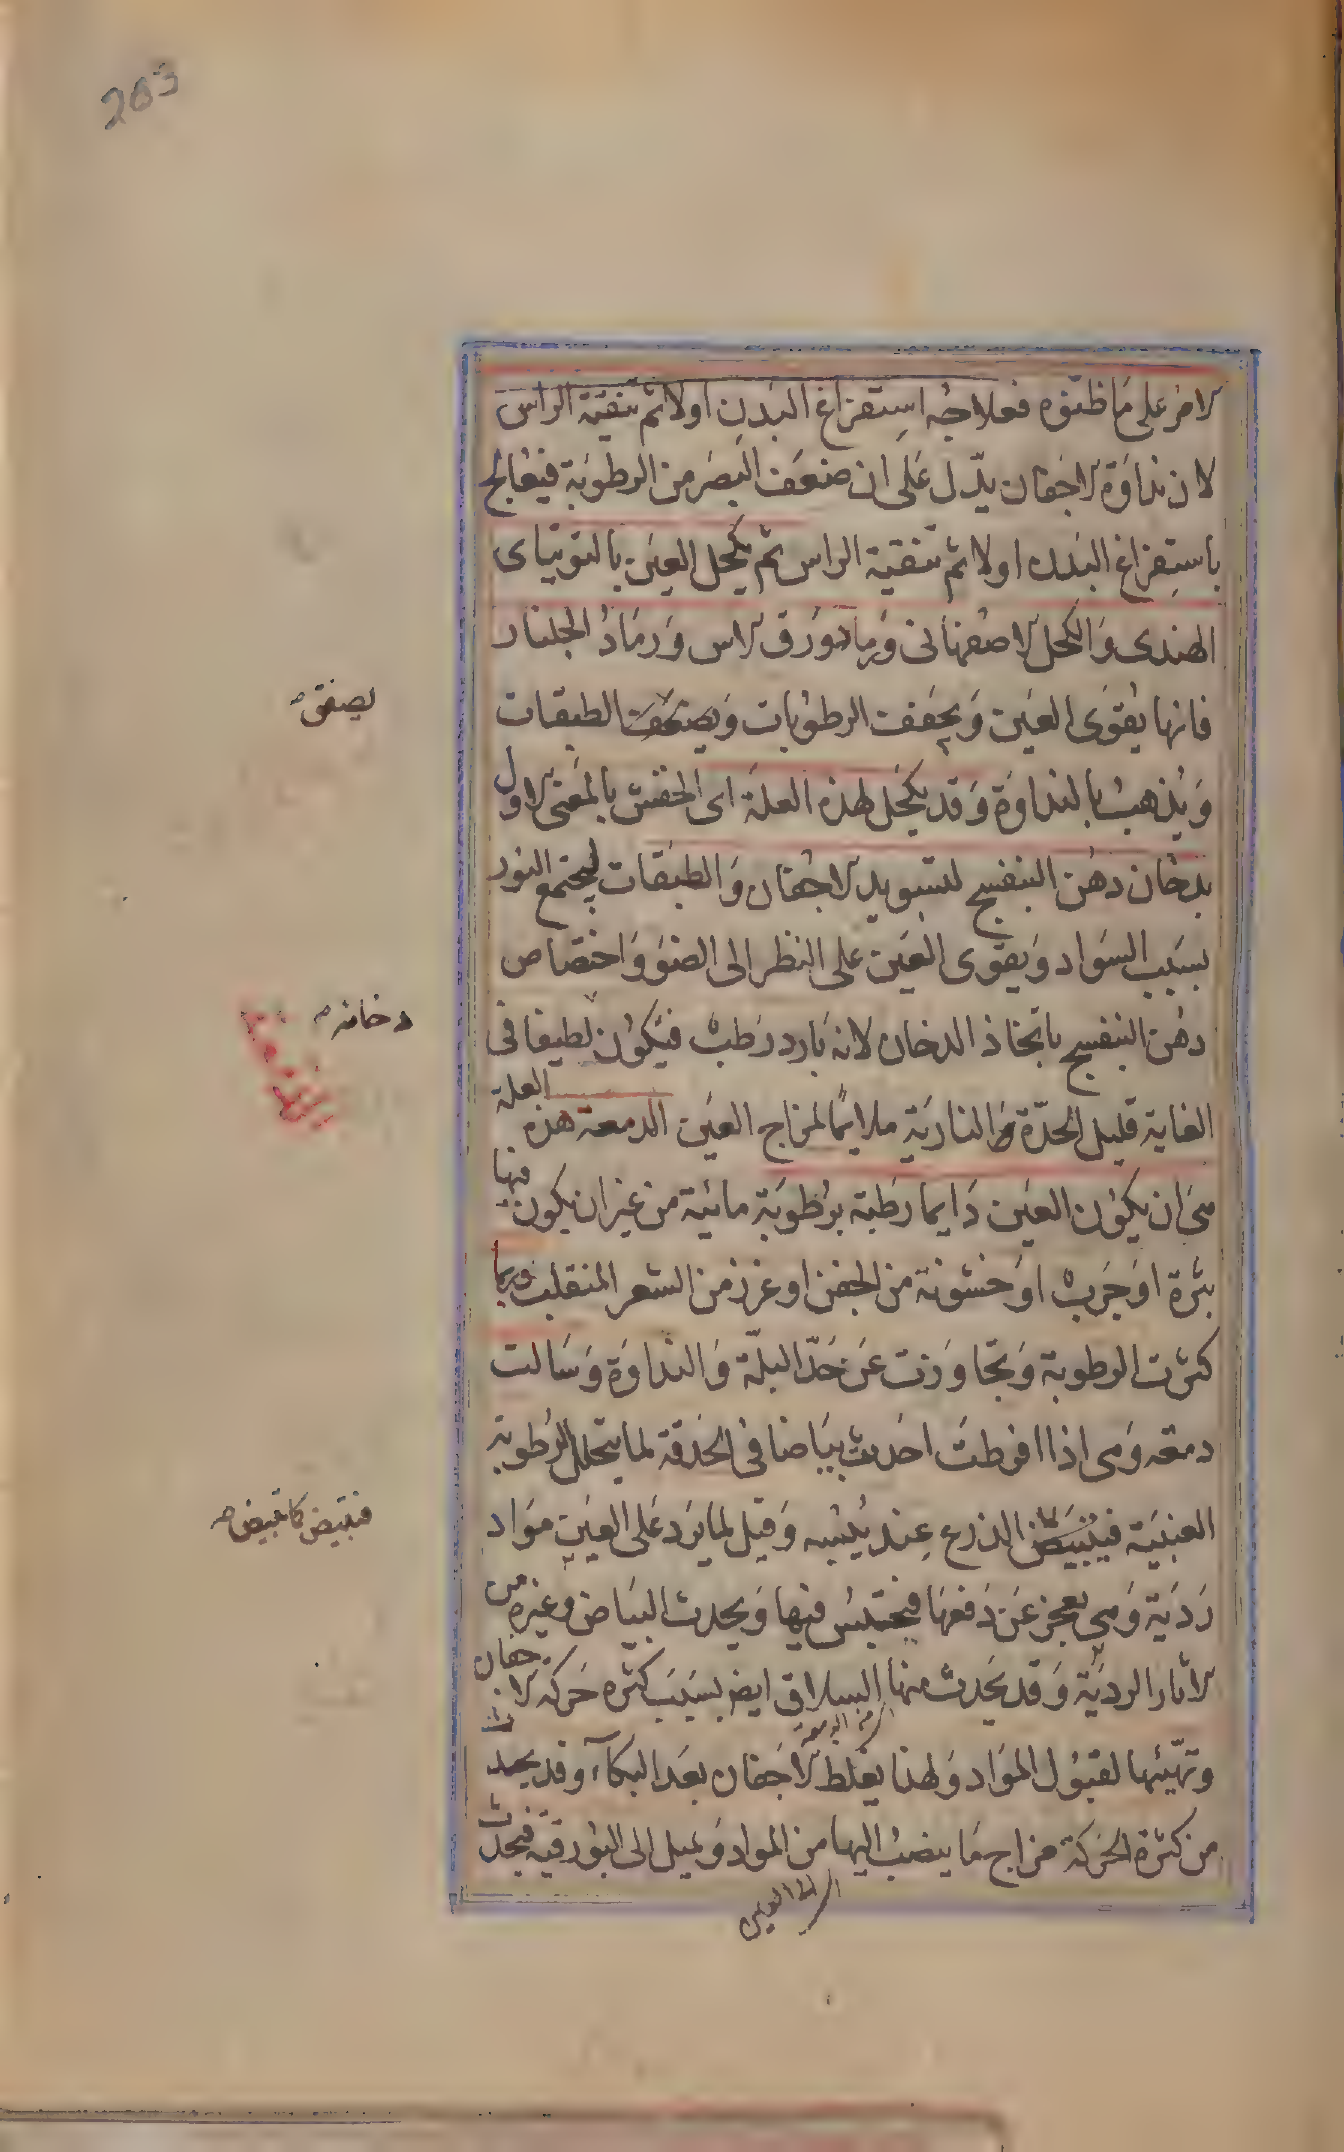 203
الامر على ما ظنوه فعلاجه استفراغ البدن اولا ثم تنقية الراس
لان نداوة الاجفان يدل على ان ضعف البصر من الرطوبة فيعالج
باستفراغ البدن اولا ثم تنقية الراس ثم يكحل العين بالتوتياى
الهندى والكحل الاصفهانى ورماد ورق الاس ورماد الجلنار
فانها يقوى العين ويجفف الرطوبات ويضعف الطبقات
يصفق
ويذهب بالنداوة وقد يكحل لهذه العلة اى الخفش بالمعنى الاول
بدخان دهن البنفسج لتسويد الاجفان والطبقات ليجتمع النور
بسبب السواد ويقوى العين على النظر الى الضوء واختصاص
دهن البنفسج باتخاذ الدخان لانه بارد رطب فيكون لطيفا فى
دخانه
الغاية قليل الحدة والنارية ملايما لمزاج العين الدمعة هذه العلة
هى ان يكون العين دايما رطبة برطوبة مائية من غير ان يكون فيها
بثرة او جرب او خشونة من الجفن او غرز من الشعر المنقلب وربما
كثرت الرطوبة وتجاوزت عن حد البلة والنداوة وسالت
دمعه وهى اذا افرطت احدث بياضا فى الحدقة لما يتحلل الرطوبة
العنبية فيبيض الزرع عند يبسه وقيل لما يرد على العين مواد
فتبيض كما تبيض
ردية وهى يعجز عن دفعها فيحتبس فيها ويحدث البياض وغيره من
الاثار الردية وقد يحدث منها السلاق ايض بسبب كثره حركة الاجفان
وتهيئها لقبول المواد ولهذا يغلظ الاجفان بعد البكاء وقد يحدث
من كثرة الحركة مزاج ما ينصب اليها من المواد ويميل الى البورقية فيحدث